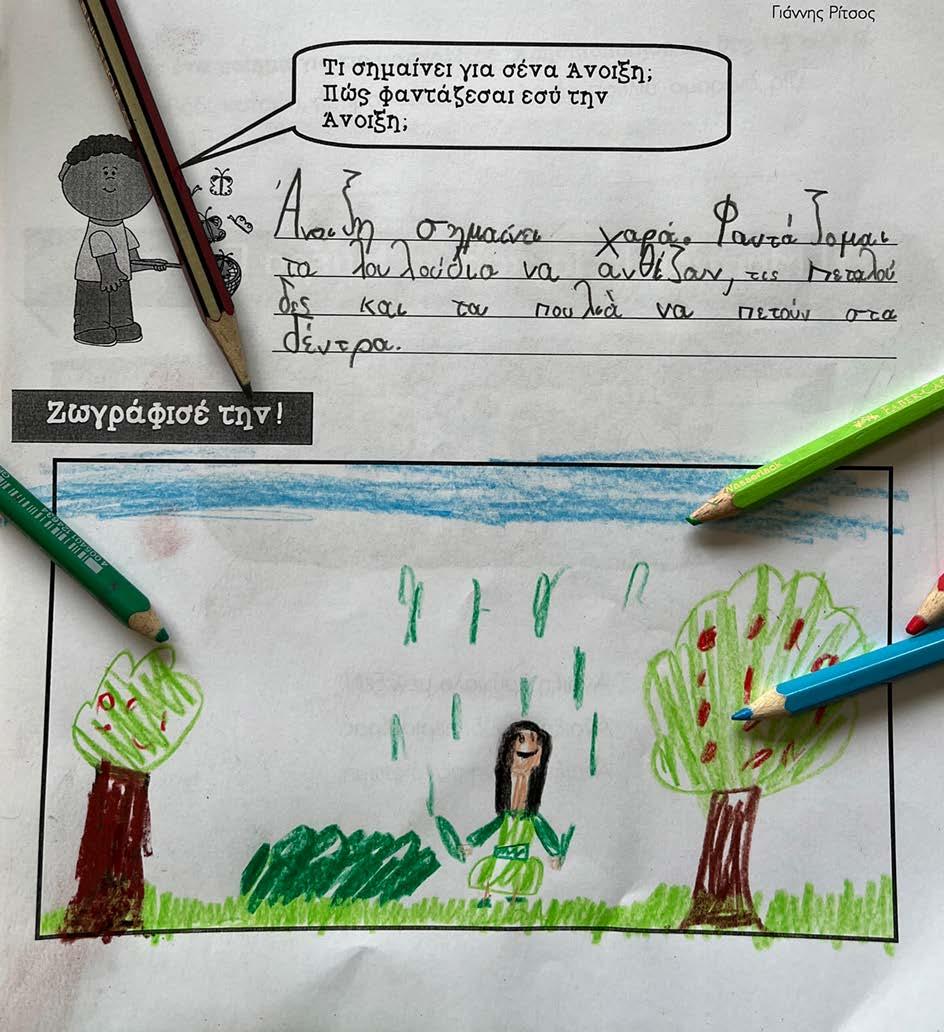 Γιάννης Ρίτσος
Τι σημαίνει για σένα Άνοιξη;
Πώς φαντάζεσαι εσύ την
Άνοιξη;
Άνοιξη σημαίνει χαρά. Φαντάζομαι
τα λουλούδια να ανθίζαν, τις πεταλού
δες και τα πουλιά να πετούν στα
δέντρα.
Ζωγράφισέ την!
Wasserlack
FABER-CA